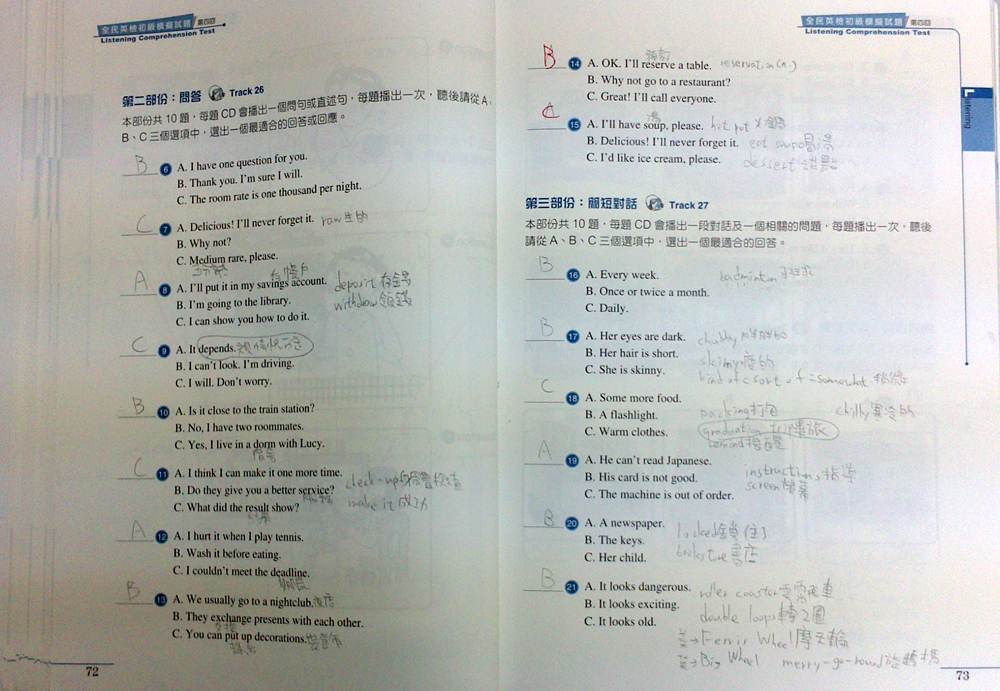 全民英檢初級模擬試題 第四回
Listening Comprehension Test
第二部份：問答 Track 26
本部份共 10 題，每題 CD 會播出一個問句或直述句，每題播出一次，聽後請從 A、
B、C 三個選項中，選出一個最適合的回答或回應。
B 6 A. I have one question for you.
B. Thank you. I'm sure I will.
C. The room rate is one thousand per night.
C 7 A. Delicious! I'll never forget it. raw 生的
B. Why not?
C. Medium rare, please.
存帳戶
A 8 A. I'll put it in my savings account. deposit 存錢
B. I'm going to the library. withdraw 領錢
C. I can show you how to do it.
C 9 A. It depends. 視情況而定
B. I can't look. I'm driving.
C. I will. Don't worry.
B 10 A. Is it close to the train station?
B. No, I have two roommates.
C. Yes, I live in a dorm with Lucy.
宿舍
C 11 A. I think I can make it one more time. check-up 身體檢查
B. Do they give you a better service? make it 成功
服務
C. What did the result show?
結果
A 12 A. I hurt it when I play tennis.
B. Wash it before eating.
C. I couldn't meet the deadline.
期限
B 13 A. We usually go to a nightclub. 夜店
B. They exchange presents with each other.
交換
C. You can put up decorations.
72
全民英檢初級模擬試題 第四回
Listening Comprehension Test
Listening
預訂
B 14 A. OK. I'll reserve a table. reservation (n.)
B. Why not go to a restaurant?
C. Great! I'll call everyone.
湯
C 15 A. I'll have soup, please. hot pot 火鍋
B. Delicious! I'll never forget it. eat soup 喝湯
C. I'd like ice cream, please. dessert 甜點
第三部份：簡短對話 Track 27
本部份共 10 題，每題 CD 會播出一段對話及一個相關的問題，每題播出一次，聽後
請從 A、B、C 三個選項中，選出一個最適合的回答。
B 16 A. Every week. badminton 羽球
B. Once or twice a month.
C. Daily.
B 17 A. Her eyes are dark. chubby 胖胖的
B. Her hair is short. skinny 瘦的
C. She is skinny. kind of = sort of = somewhat 稍微
C 18 A. Some more food. packing 打包 chilly 寒冷的
B. A flashlight. graduation trip 畢旅
C. Warm clothes. remind 提醒
A 19 A. He can't read Japanese. instructions 指導
B. His card is not good. screen 螢幕
C. The machine is out of order.
B 20 A. A newspaper. locked 鎖住了
B. The keys. bookstore 書店
C. Her child.
B 21 A. It looks dangerous. roller coaster 雲霄飛車
B. It looks exciting. double loops 轉2圈
C. It looks old. 美→Ferris Wheel 摩天輪
英→Big Wheel merry-go-round 旋轉木馬
73